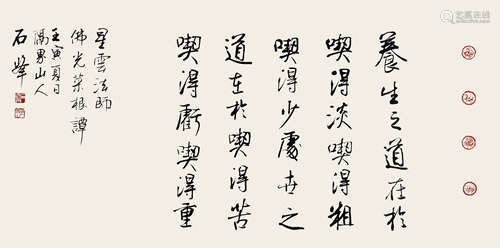 養生之道在於
喫得淡喫得粗
喫得少處世之
道在於喫得苦
喫得虧喫得重
星雲法師
佛光菜根譚
壬寅夏日
隅界山人
石峰